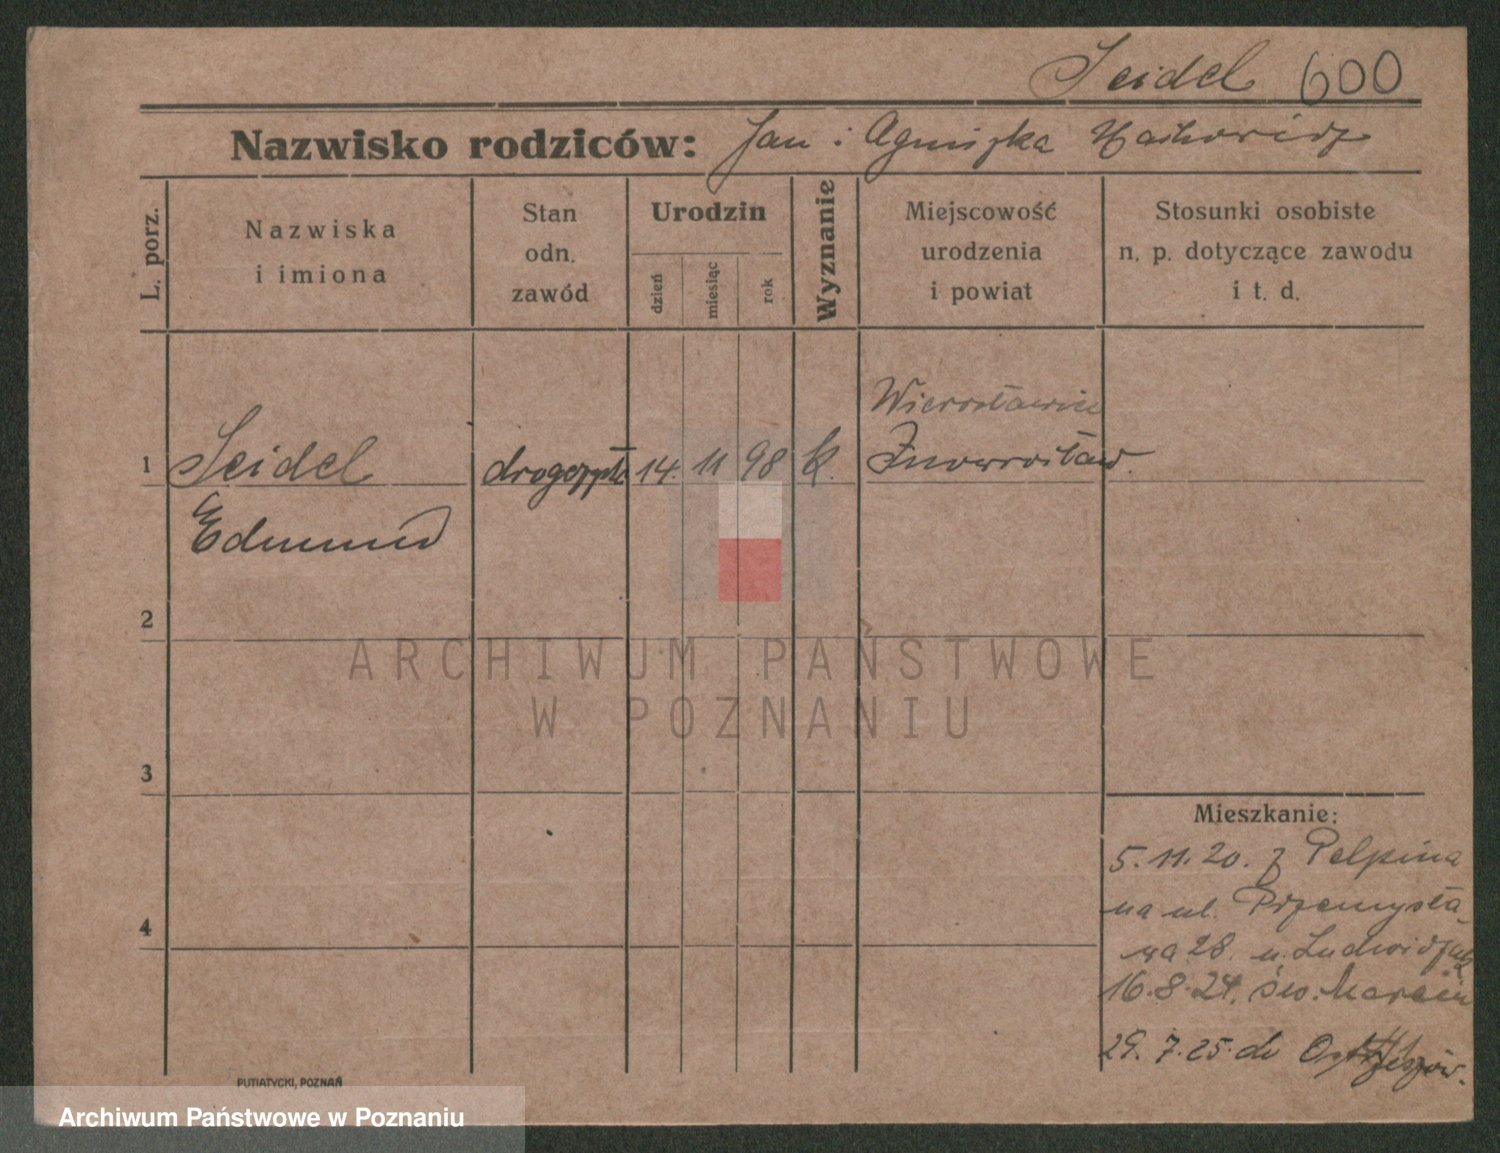 Seidel 600
Nazwisko rodziców: Jan i Agniszka
L. porz.
Nazwiska
i imiona
Stan
odn.
zawód
Urodzin
dzień
miesiąc
rok
Wyznanie
Miejscowość
urodzenia
i powiat
Stosunki osobiste
n. p. dotyczące zawodu
i t. d.
Wierosławice
1 Seidel 14. 11 98 k. Inowrosław.
Edmund
2
3
4
Mieszkanie:
5.11.20. z Pelpina
na ul. Przemysła-
wa 28. u.
16.8.24. św. Marcin
29.7.25. do Ostrzeszów.
PUTIATYCKI, POZNAŃ
ARCHIWUM PAŃSTWOWE
W POZNANIU
Archiwum Państwowe w Poznaniu